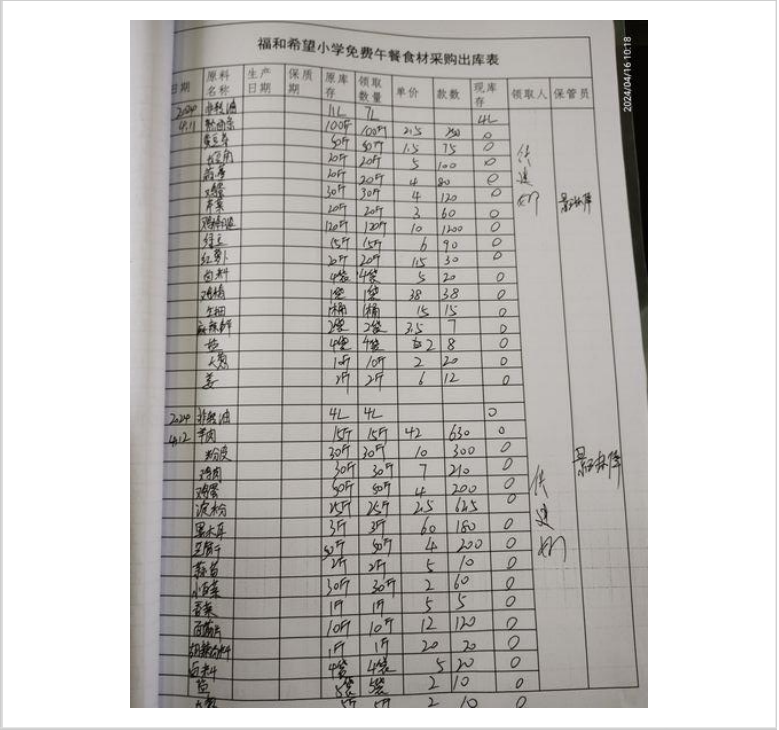 福和希望小学免费午餐食材采购出库表
日期 原料名称 生产日期 保质期 原库存 领取数量 单价 款数 现库存 领取人 保管员
2024 非转油 11L 7L 4L
4.11 100斤 100斤 2.5 250 0
黄豆芽 50斤 50斤 1.5 75 0
20斤 20斤 5 100 0
20斤 20斤 4 80 0
鸡蛋 30斤 30斤 4 120 0
芹菜 20斤 20斤 3 60 0
120斤 120斤 10 1200 0
绿豆 15斤 15斤 6 90 0
红萝卜 20斤 20斤 1.5 30 0
卤料 4袋 4袋 5 20 0
鸡精 1袋 1袋 38 38 0
1桶 1桶 15 15 0
麻辣鲜 2袋 2袋 3.5 7 0
盐 4袋 4袋 2 8 0
大葱 10斤 10斤 2 20 0
姜 2斤 2斤 6 12 0
2024 非转油 4L 4L 0
4.12 羊肉 15斤 15斤 42 630 0
粉皮 30斤 30斤 10 300 0
鸡肉 30斤 30斤 7 210 0
鸡蛋 50斤 50斤 4 200 0
淀粉 25斤 25斤 2.5 62.5 0
黑木耳 3斤 3斤 60 180 0
豆腐干 50斤 50斤 4 200 0
蒜苗 2斤 2斤 5 10 0
小白菜 30斤 30斤 2 60 0
香菜 1斤 1斤 5 5 0
10斤 10斤 12 120 0
胡辣汤料 1斤 1斤 20 20 0
卤料 4袋 4袋 5 20 0
盐 5袋 5袋 2 10 0
大葱 5斤 5斤 2 10 0
2024/04/16 10:18